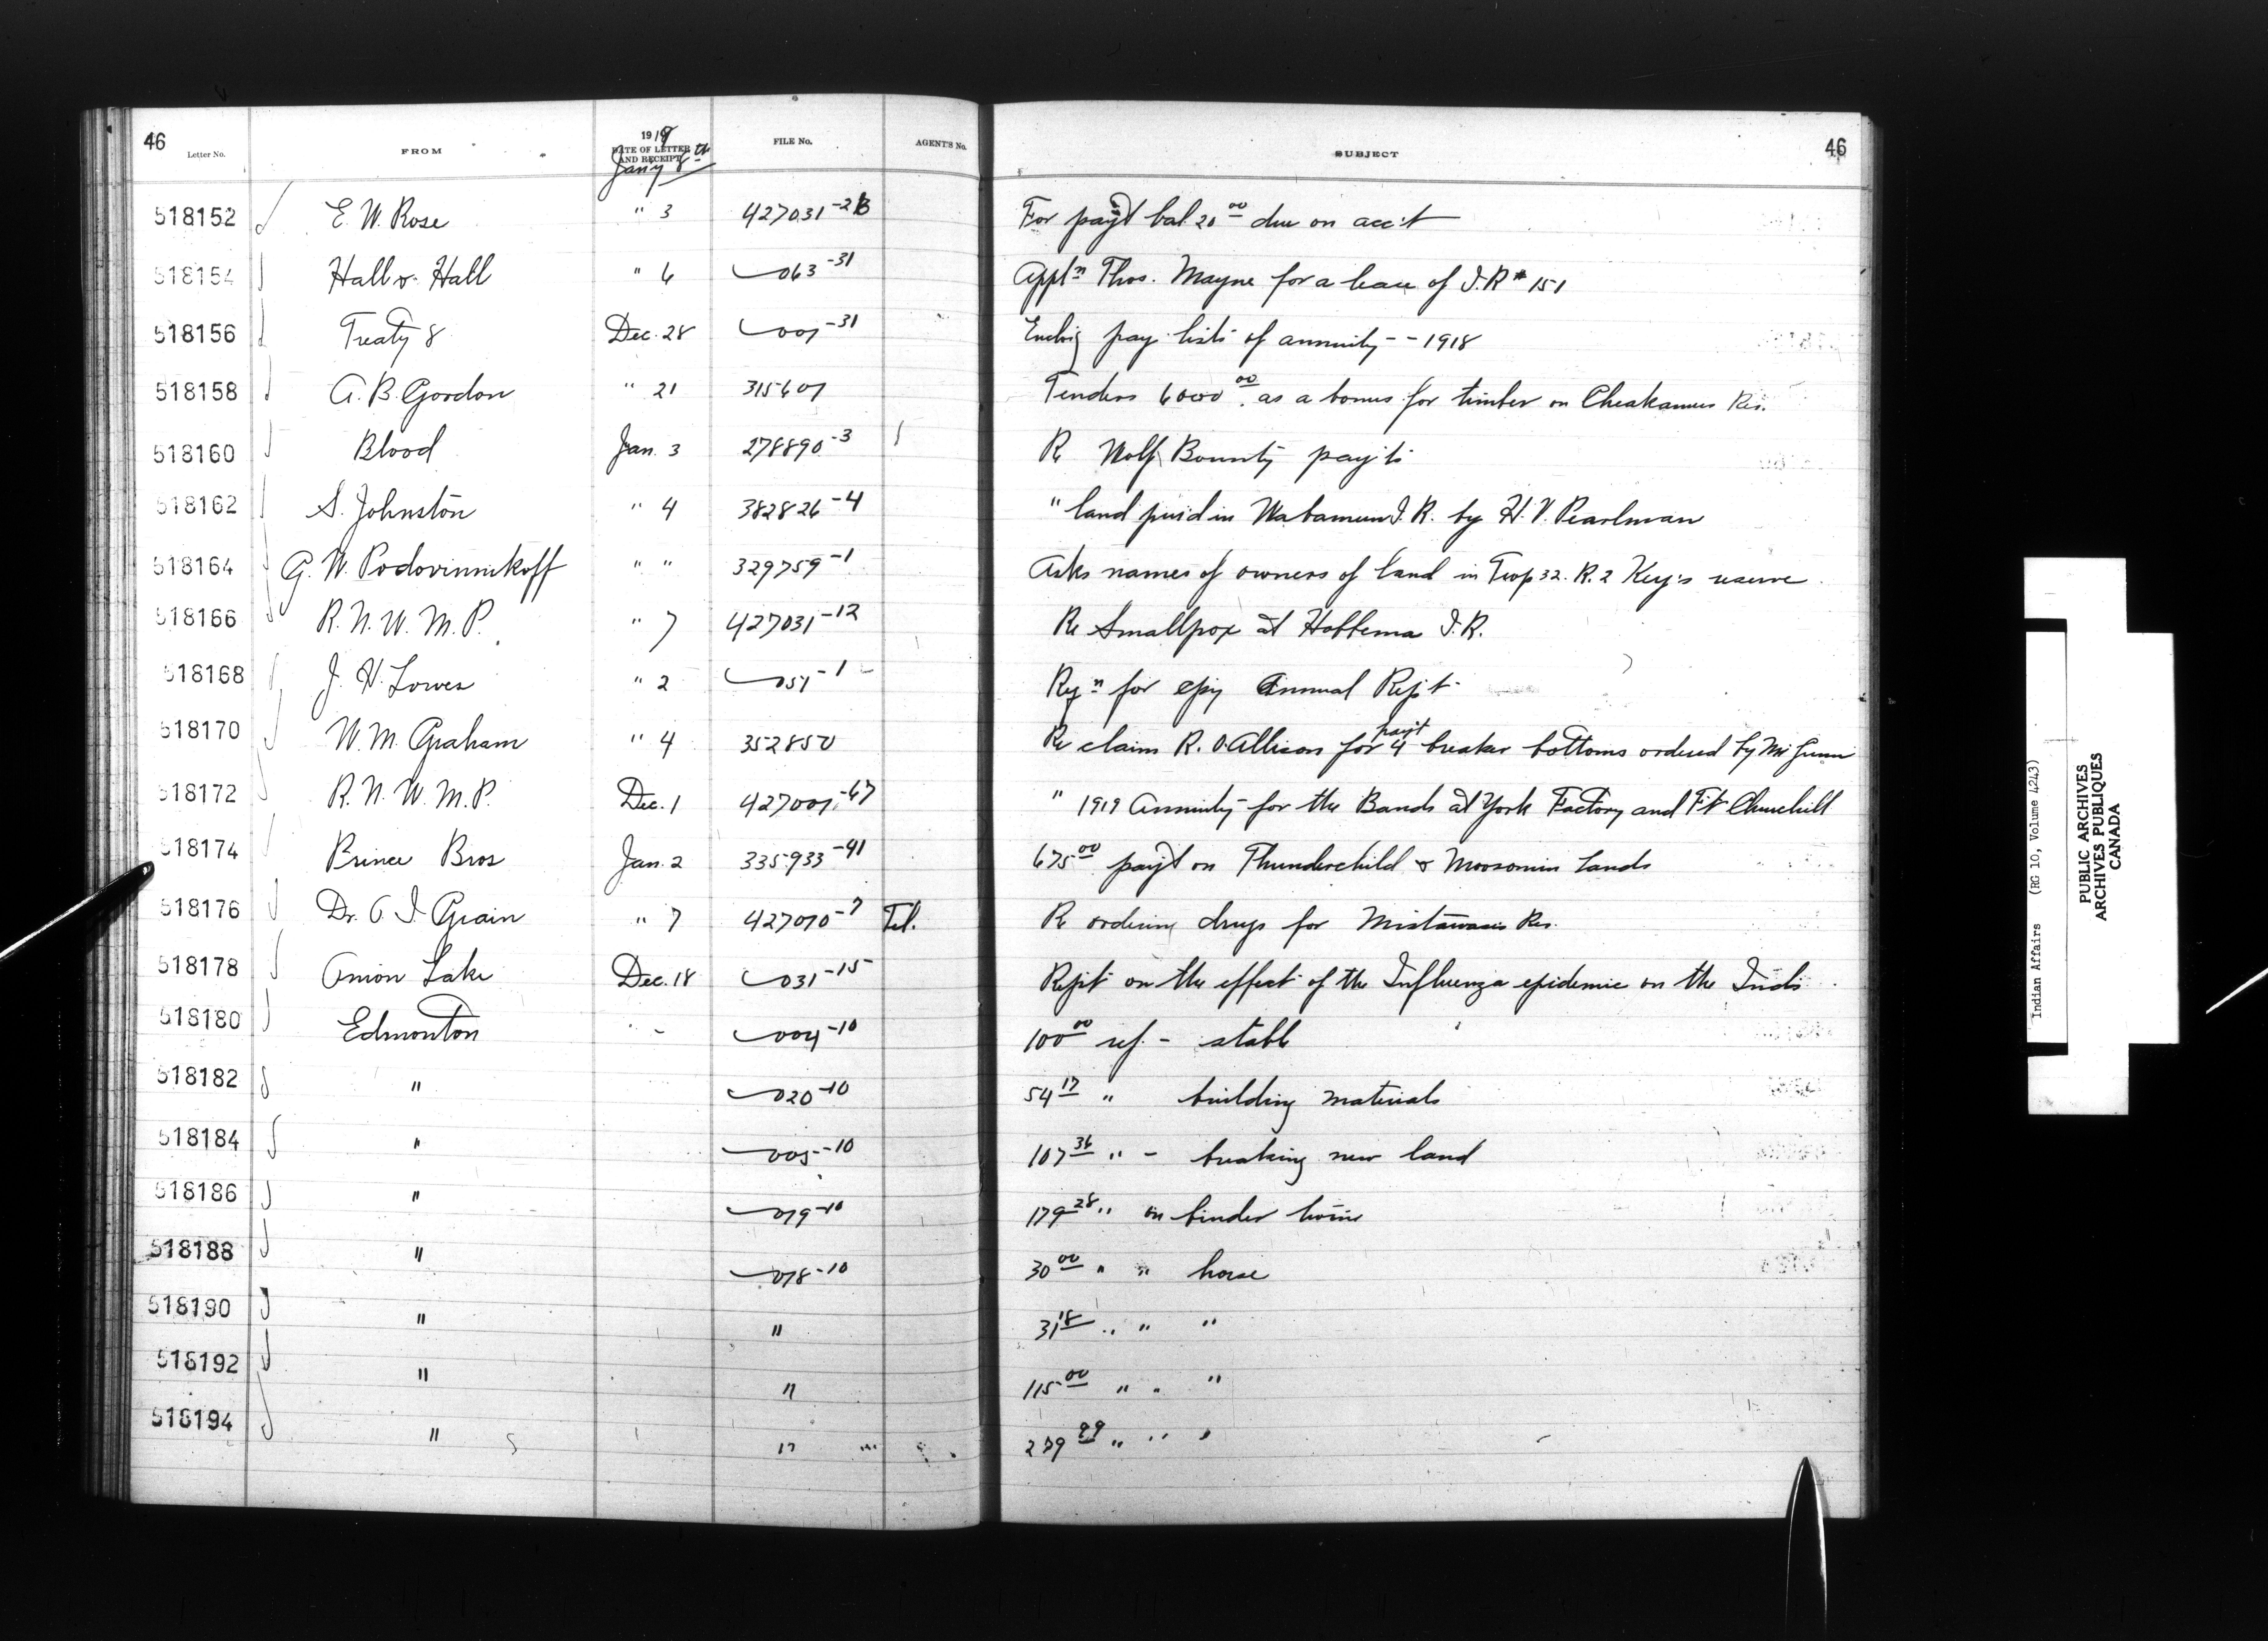 46 Letter No. FROM 1919 DATE OF LETTER AND RECEIPT Jan'y 8th FILE No. AGENT'S No. SUBJECT 46
518152 E. W. Rose " 3 427031-2B For pay't bal 20 00 due on acc't
518154 Hall & Hall " 6 063-31 Appln Thos. Mayne for a lease of I.R # 151
518156 Treaty 8 Dec. 28 001-31 Enclos'g pay lists of annuity - - 1918
518158 A. B. Gordon " 21 315607 Tenders 6000 00 as a bonus for timber on Cheakamus Res.
518160 Blood Jan. 3 278890-3 Re Wolf Bounty pay'ts
518162 S. Johnston " 4 382826-4 " land in Wabamun I.R. by H. V. Pearlman
518164 G. W. Podovinnikoff " " 329759-1 Asks names of owners of land in Twp 32. R. 2 Key's reserve.
518166 R. N. W. M. P. " 7 427031-12 Re Smallpox at Hobbema I.R.
518168 J. H. Lowes " 2 051-1 Reqn for cpy Annual Rep't
518170 W. M. Graham " 4 352850 Re claim R. O. Allison for pay't 4 breaker bottoms ordered by Mr Gunn
518172 R. N. W. M. P. Dec. 1 427001-67 " 1919 Annuity for the Bands at York Factory and Ft Churchill
518174 Prince Bros Jan. 2 335933-41 675 00 pay't on Thunderchild & Moosomin Lands
518176 Dr. O. I. Grain " 7 427070-7 Tel. Re ordering drugs for Mistawasis Res.
518178 Onion Lake Dec. 18 031-15 Rep't on the effect of the Influenza epidemic on the Inds.
518180 Edmonton 004-10 100 00 ref. - stable
518182 " 020-10 54 17 " building materials
518184 " 005-10 107 36 " - breaking new land
518186 " 019-10 179 28 " on binder twine
518188 " 018-10 30 00 " " horse
518190 " " 31 18 " " "
518192 " " 115 00 " " "
518194 " " 239 99 " " "
Indian Affairs (RG 10, Volume 4243)
PUBLIC ARCHIVES
ARCHIVES PUBLIQUES
CANADA